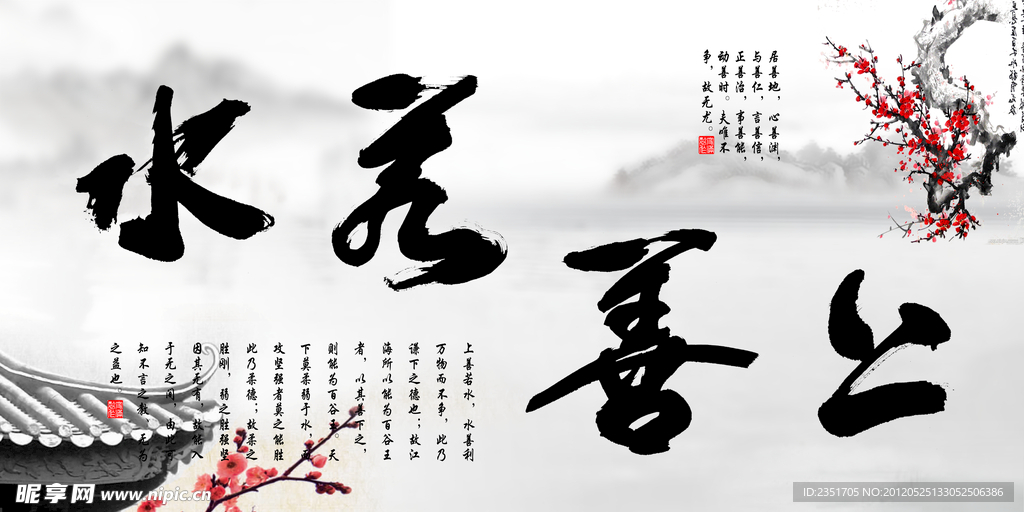 上善若水
居善地，心善渊，
与善仁，言善信，
正善治，事善能，
动善时。夫唯不
争，故无尤。
上善若水，水善利
万物而不争，此乃
谦下之德也；故江
海所以能为百谷王
者，以其善下之，
则能为百谷王。天
下莫柔弱于水，而
攻坚强者莫之能胜
此乃柔德；故柔之
胜刚，弱之胜强坚
因其无有，故能入
于无之间，由此可
知不言之教，无为
之益也。
昵享网 www.nipic.cn
ID:2351705 NO:20120525133052506386